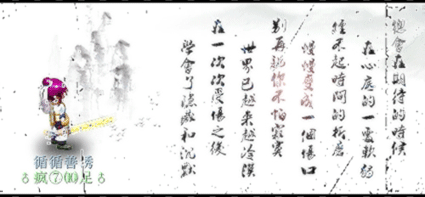 總會在期待的時候
在心底的一處軟弱
經不起時間的折磨
慢慢變成一個傷口
別再說你不怕寂寞
世界已越來越冷漠
在一次次受傷之後
學會了隱藏和沉默
循循善誘
♁瘋⑦⑽足♁